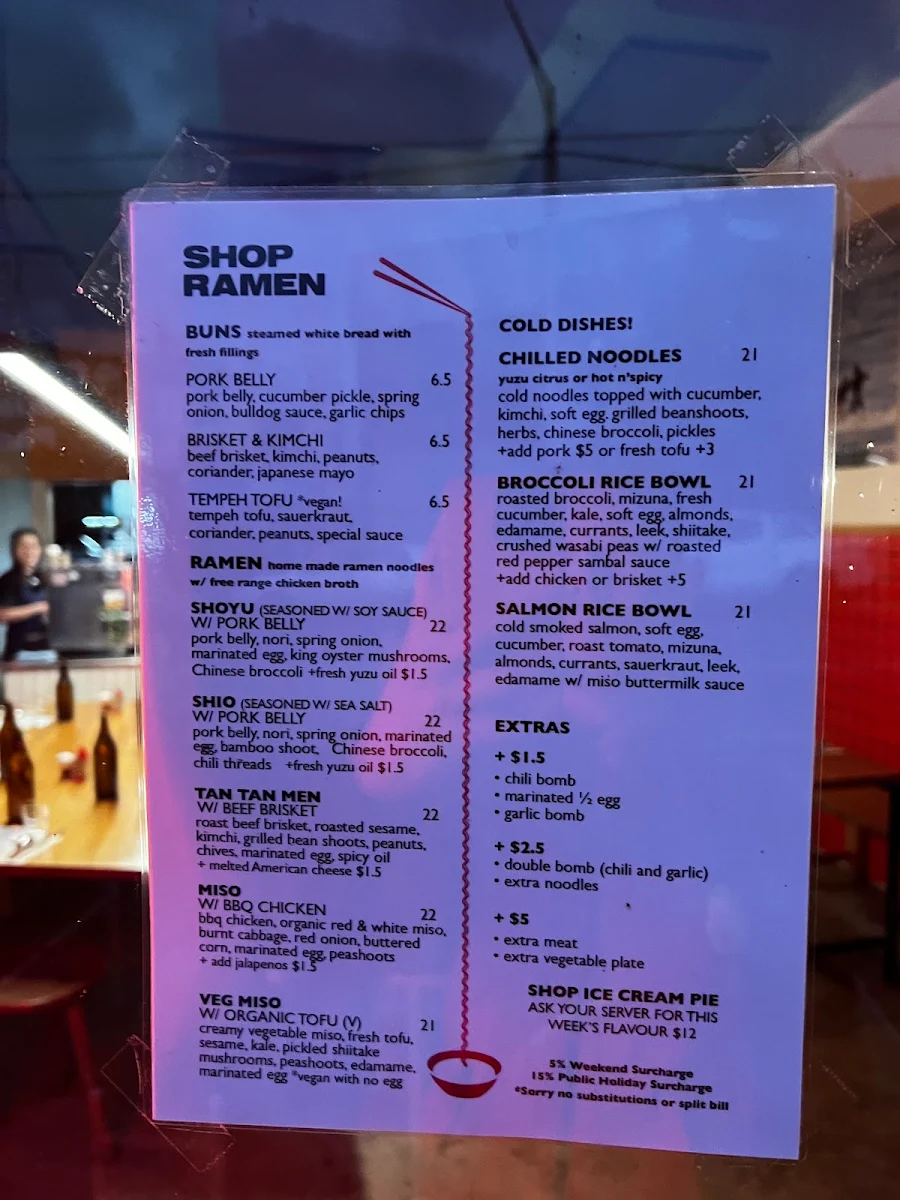 SHOP
RAMEN
BUNS steamed white bread with
fresh fillings
PORK BELLY 6.5
pork belly, cucumber pickle, spring
onion, bulldog sauce, garlic chips
BRISKET & KIMCHI 6.5
beef brisket, kimchi, peanuts,
coriander, japanese mayo
TEMPEH TOFU *vegan! 6.5
tempeh tofu, sauerkraut,
coriander, peanuts, special sauce
RAMEN home made ramen noodles
w/ free range chicken broth
SHOYU (SEASONED W/ SOY SAUCE)
W/ PORK BELLY 22
pork belly, nori, spring onion,
marinated egg, king oyster mushrooms,
Chinese broccoli +fresh yuzu oil $1.5
SHIO (SEASONED W/ SEA SALT)
W/ PORK BELLY 22
pork belly, nori, spring onion, marinated
egg, bamboo shoot, Chinese broccoli,
chili threads +fresh yuzu oil $1.5
TAN TAN MEN
W/ BEEF BRISKET 22
roast beef brisket, roasted sesame,
kimchi, grilled bean shoots, peanuts,
chives, marinated egg, spicy oil
+ melted American cheese $1.5
MISO
W/ BBQ CHICKEN 22
bbq chicken, organic red & white miso,
burnt cabbage, red onion, buttered
corn, marinated egg, peashoots
+ add jalapenos $1.5
VEG MISO
W/ ORGANIC TOFU (V) 21
creamy vegetable miso, fresh tofu,
sesame, kale, pickled shiitake
mushrooms, peashoots, edamame,
marinated egg *vegan with no egg
COLD DISHES!
CHILLED NOODLES 21
yuzu citrus or hot n'spicy
cold noodles topped with cucumber,
kimchi, soft egg. grilled beanshoots,
herbs, chinese broccoli, pickles
+add pork $5 or fresh tofu +3
BROCCOLI RICE BOWL 21
roasted broccoli, mizuna, fresh
cucumber, kale, soft egg, almonds,
edamame, currants, leek, shiitake,
crushed wasabi peas w/ roasted
red pepper sambal sauce
+add chicken or brisket +5
SALMON RICE BOWL 21
cold smoked salmon, soft egg,
cucumber, roast tomato, mizuna,
almonds, currants, sauerkraut, leek,
edamame w/ miso buttermilk sauce
EXTRAS
+ $1.5
• chili bomb
• marinated ½ egg
• garlic bomb
+ $2.5
• double bomb (chili and garlic)
• extra noodles
+ $5
• extra meat
• extra vegetable plate
SHOP ICE CREAM PIE
ASK YOUR SERVER FOR THIS
WEEK'S FLAVOUR $12
5% Weekend Surcharge
15% Public Holiday Surcharge
*Sorry no substitutions or split bill